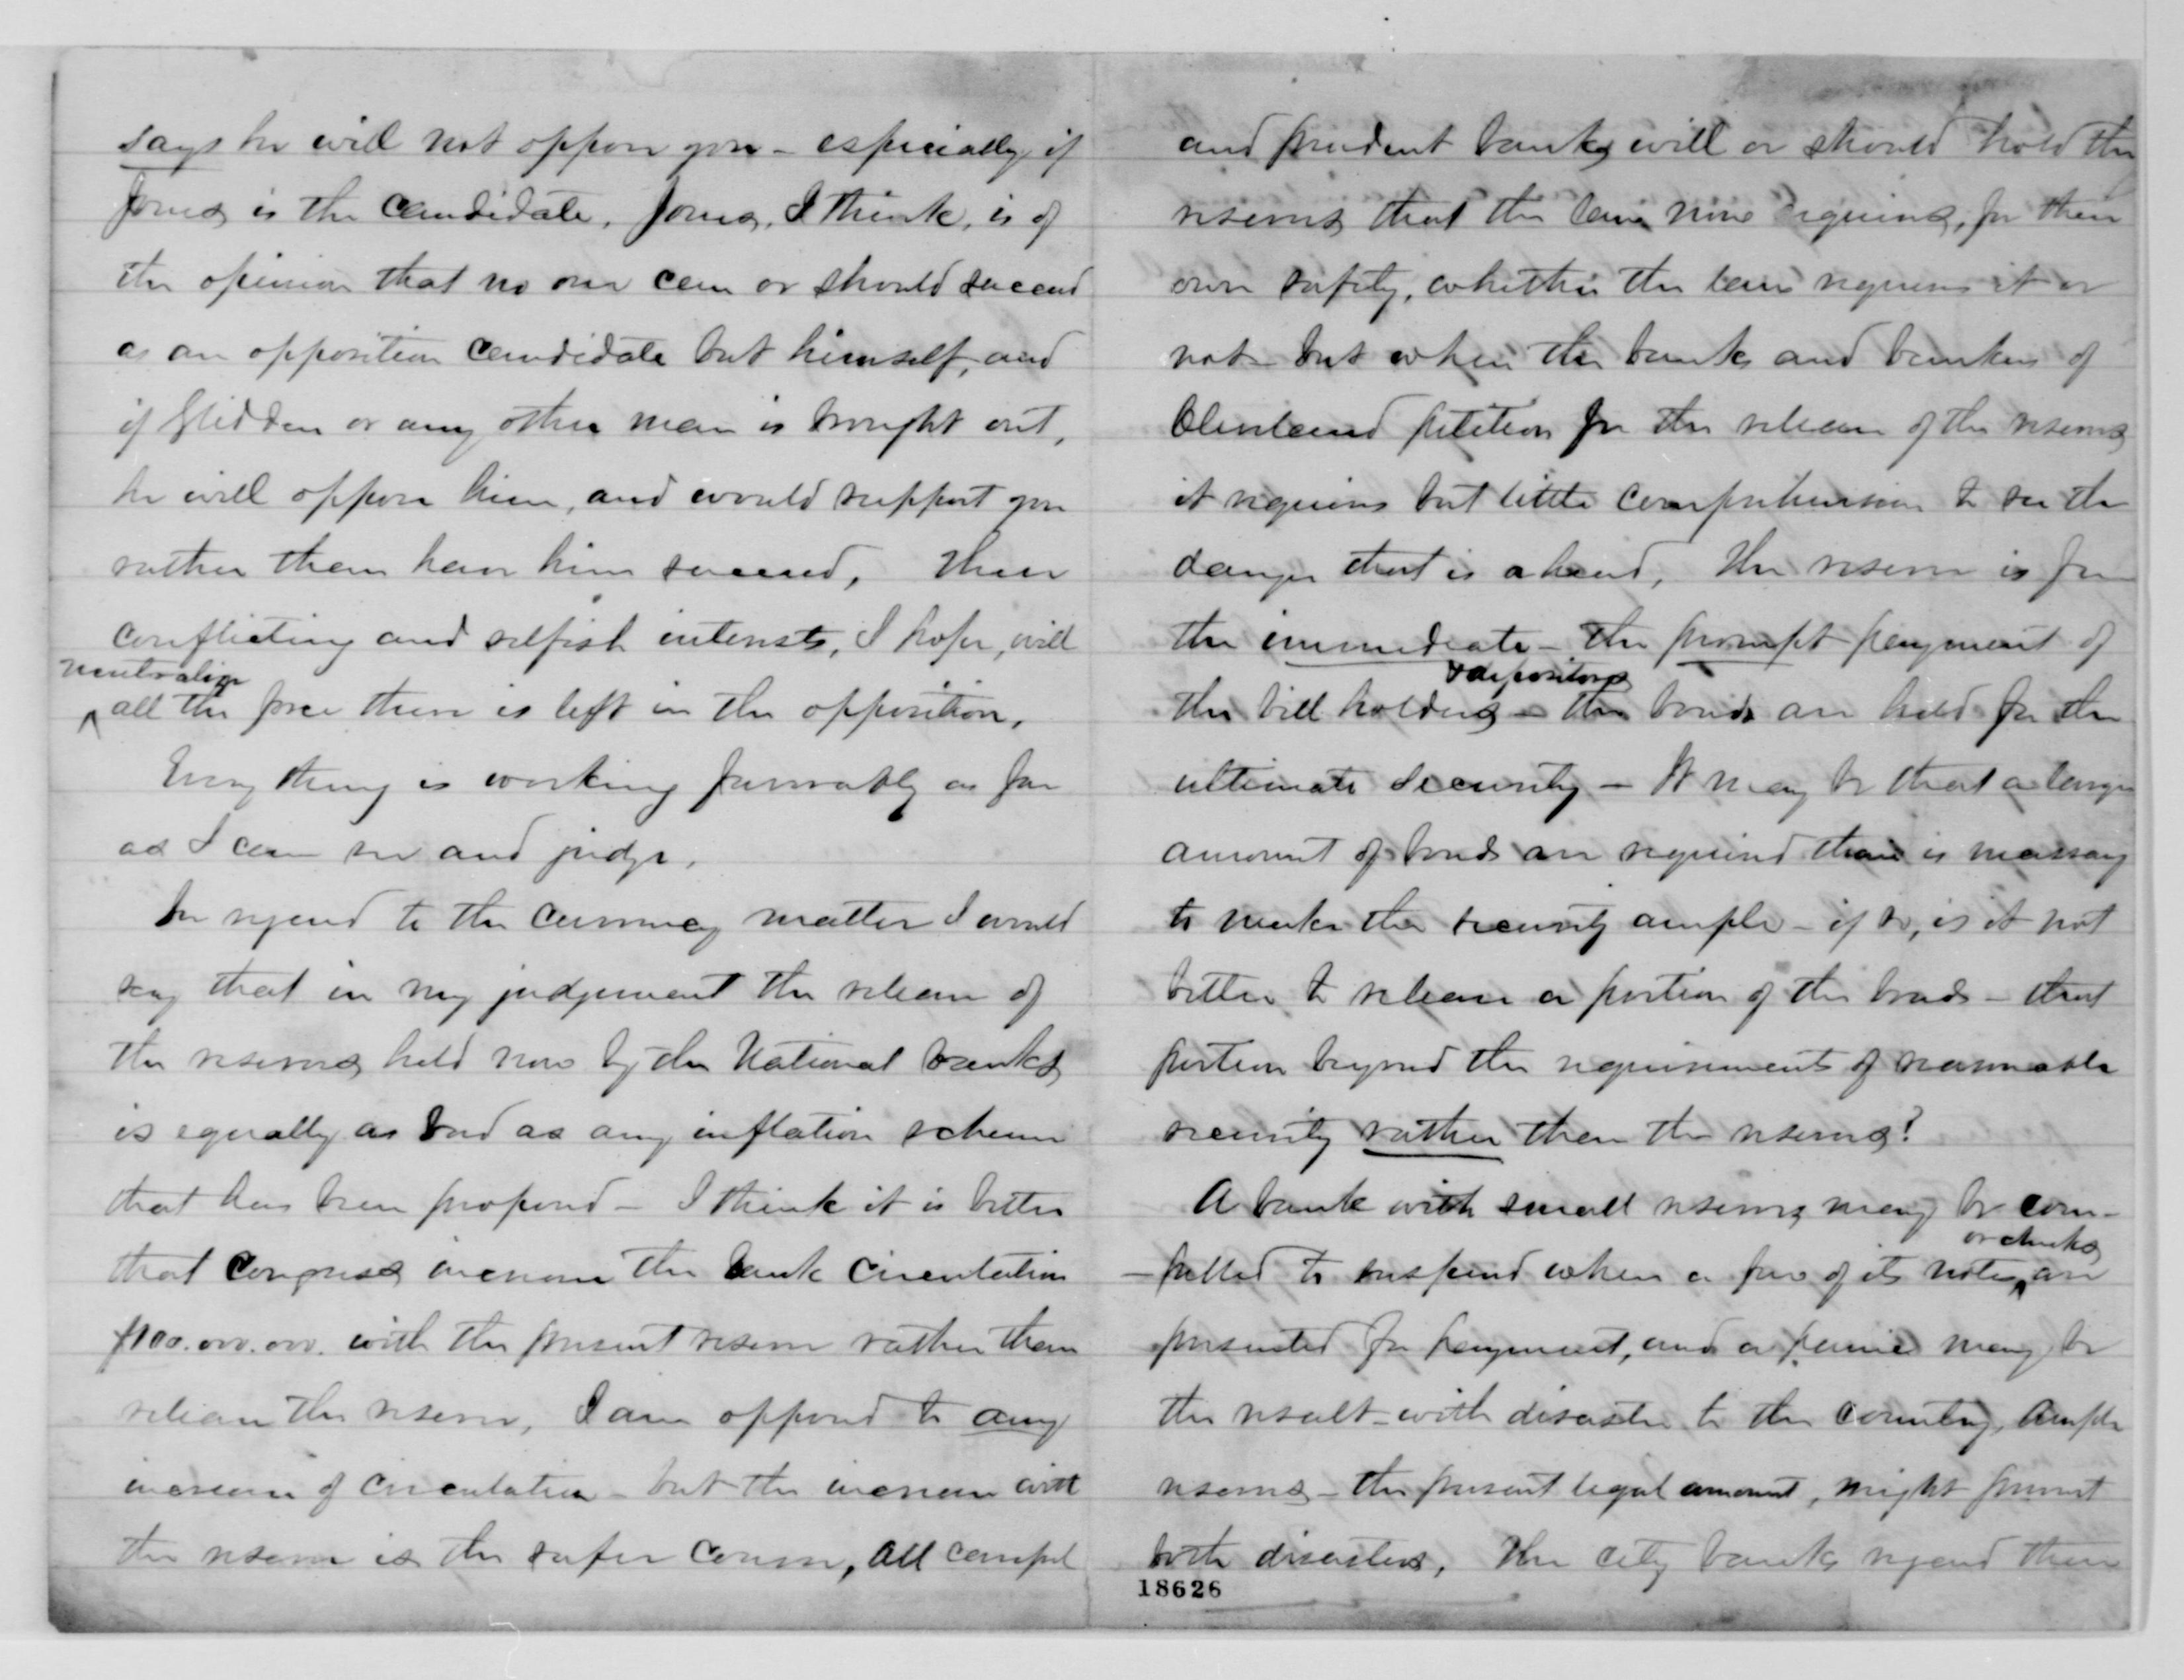 says he will not oppose you - especially if
Jones is the candidate. Jones, I think, is of
the opinion that no one can or should succeed
as an opposition candidate but himself, and
if Glidden or any other man is brought out,
he will oppose him, and would support you
rather than have him succeed. These
conflicting and selfish interests, I hope, will
neutralize
all the force there is left in the opposition.
Every thing is working favorably as far
as I can see and judge.
In regard to the currency matter I would
say that in my judgement the release of
the reserves held now by the National banks
is equally as bad as any inflation scheme
that has been proposed - I think it is better
that Congress increase the bank circulation
$100.000.000. with the present reserve rather than
release the reserve. I am opposed to any
increase of circulation - but the increase with
the reserve is the safer course, All careful
and prudent banks will or should hold the
reserves that the law now requires, for their
own safety, whether the law requires it or
not - but when the banks and bankers of
Cleveland petition for the release of the reserves
it requires but little comprehension to see the
danger that is ahead. The reserve is for
the immediate - the prompt payment of
& depositors
the bill holders - the bonds are held for the
ultimate security - It may be that a larger
amount of bonds are required than is necessary
to make the security ample - if so, is it not
better to release a portion of the bonds - that
portion beyond the requirements of reasonable
security rather than the reserves?
A bank with small reserves may be com-
or checks
-pelled to suspend when a few of its notes are
presented for payment, and a panic may be
the result - with disaster to the country. Ample
reserves - the present legal amount, might prevent
both disasters. The city banks regard their
18626